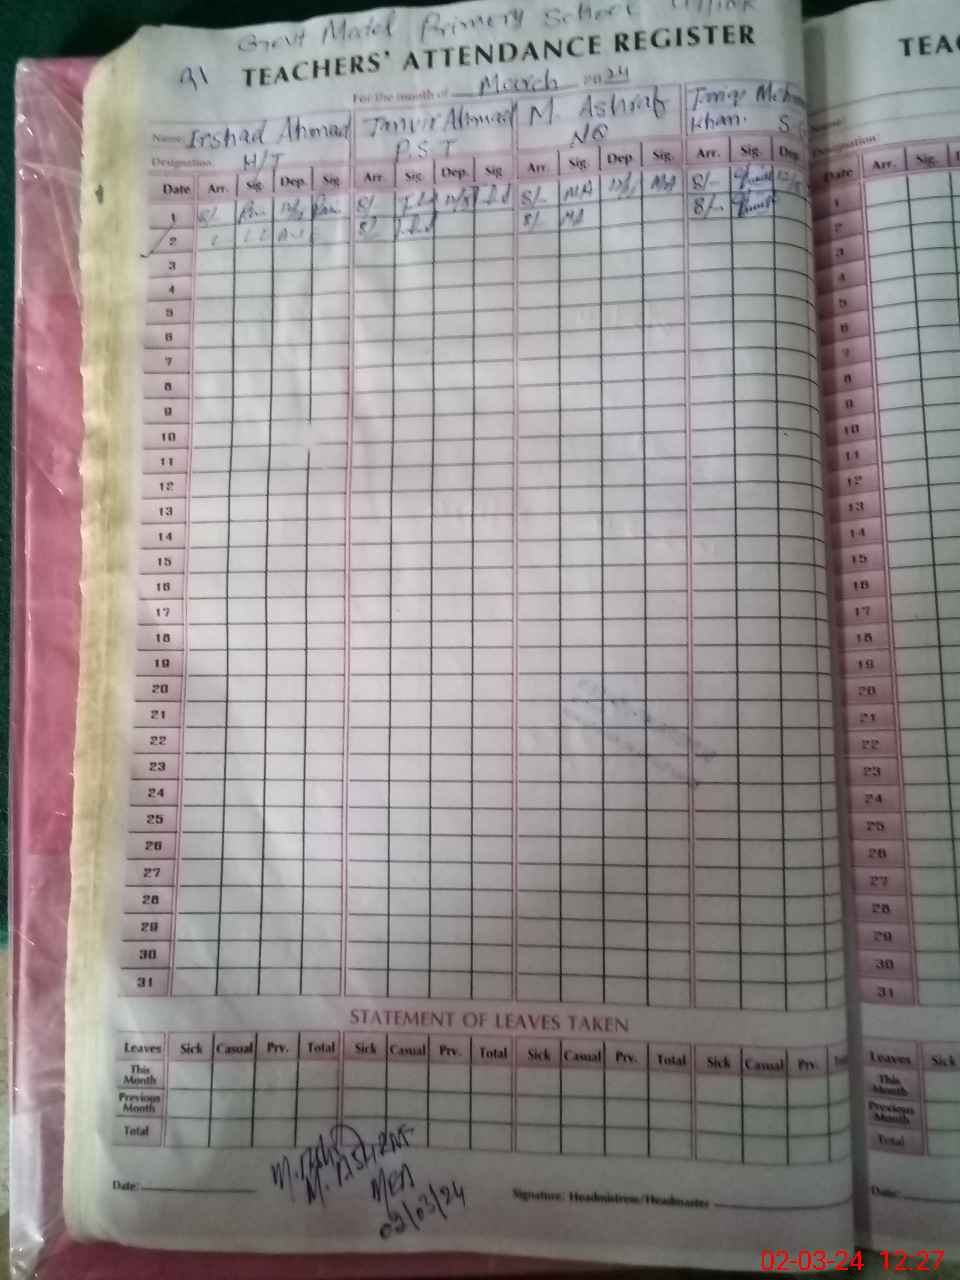 Govt Model Primary School
91 TEACHERS' ATTENDANCE REGISTER
For the month of March 2024
Name Irshad Ahmad Tanvir Ahmad M. Ashraf
Khan.
Designation H/T P.S.T NQ
Date Arr. Sig. Dep. Sig. Arr. Sig. Dep. Sig. Arr. Sig. Dep. Sig. Arr. Sig. Dep.
1 8/- 8/- 8/- MA MA 8/-
2 8/- 8/- MA 8/-
3
4
5
6
7
8
9
10
11
12
13
14
15
16
17
18
19
20
21
22
23
24
25
26
27
28
29
30
31
STATEMENT OF LEAVES TAKEN
Leaves Sick Casual Prv. Total Sick Casual Prv. Total Sick Casual Prv. Total Sick Casual Prv.
This Month
Previous Month
Total
M. ASHRAF
MEA
02/03/24
Date: Signature: Headmistress/Headmaster
TEA
Name:
Designation:
Date Arr. Sig.
1
2
3
4
5
6
7
8
9
10
11
12
13
14
15
16
17
18
19
20
21
22
23
24
25
26
27
28
29
30
31
Leaves Sick
This Month
Previous Month
Total
Date:
02-03-24 12:27